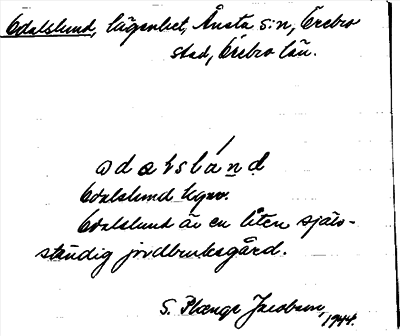 Odalslund, lägenhet, Ånsta s:n, Örebro
stad, Örebro län.
odalslund
Odalslund
Odalslund är en liten själv-
ständig jordbruksgård.
S. Plænge Jacobson,
1944.